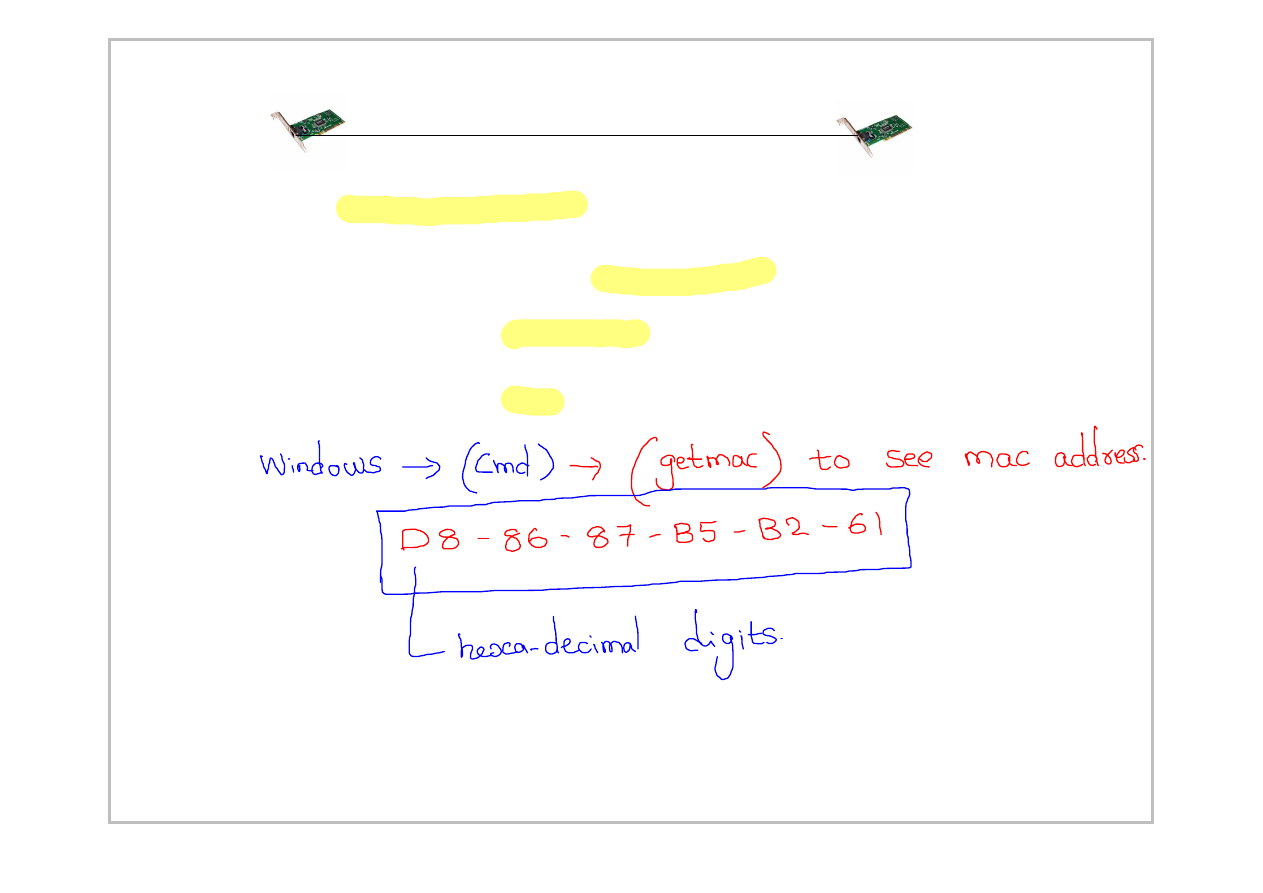 Windows → (Cmd) → (getmac) to see mac address.
D8 - 86 - 87 - B5 - B2 - 61
hexa-decimal digits.